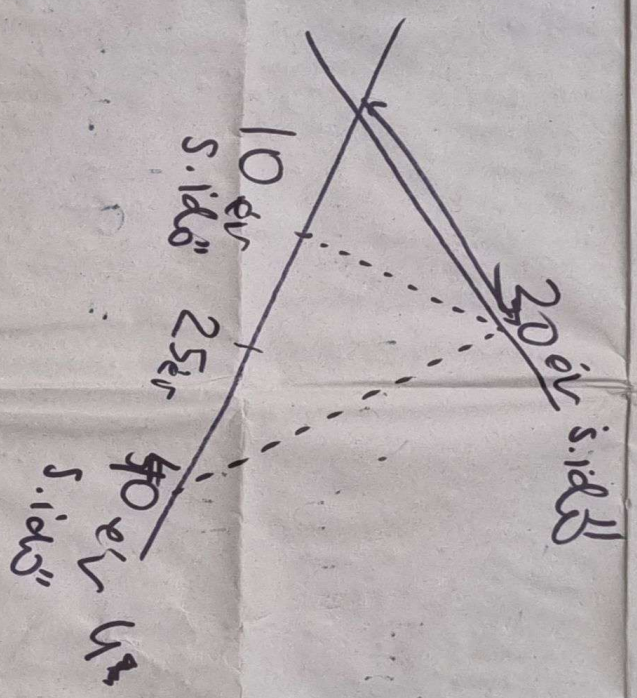 20 év
s.idő
10 év
s.idő
25 év
40 év
s.idő